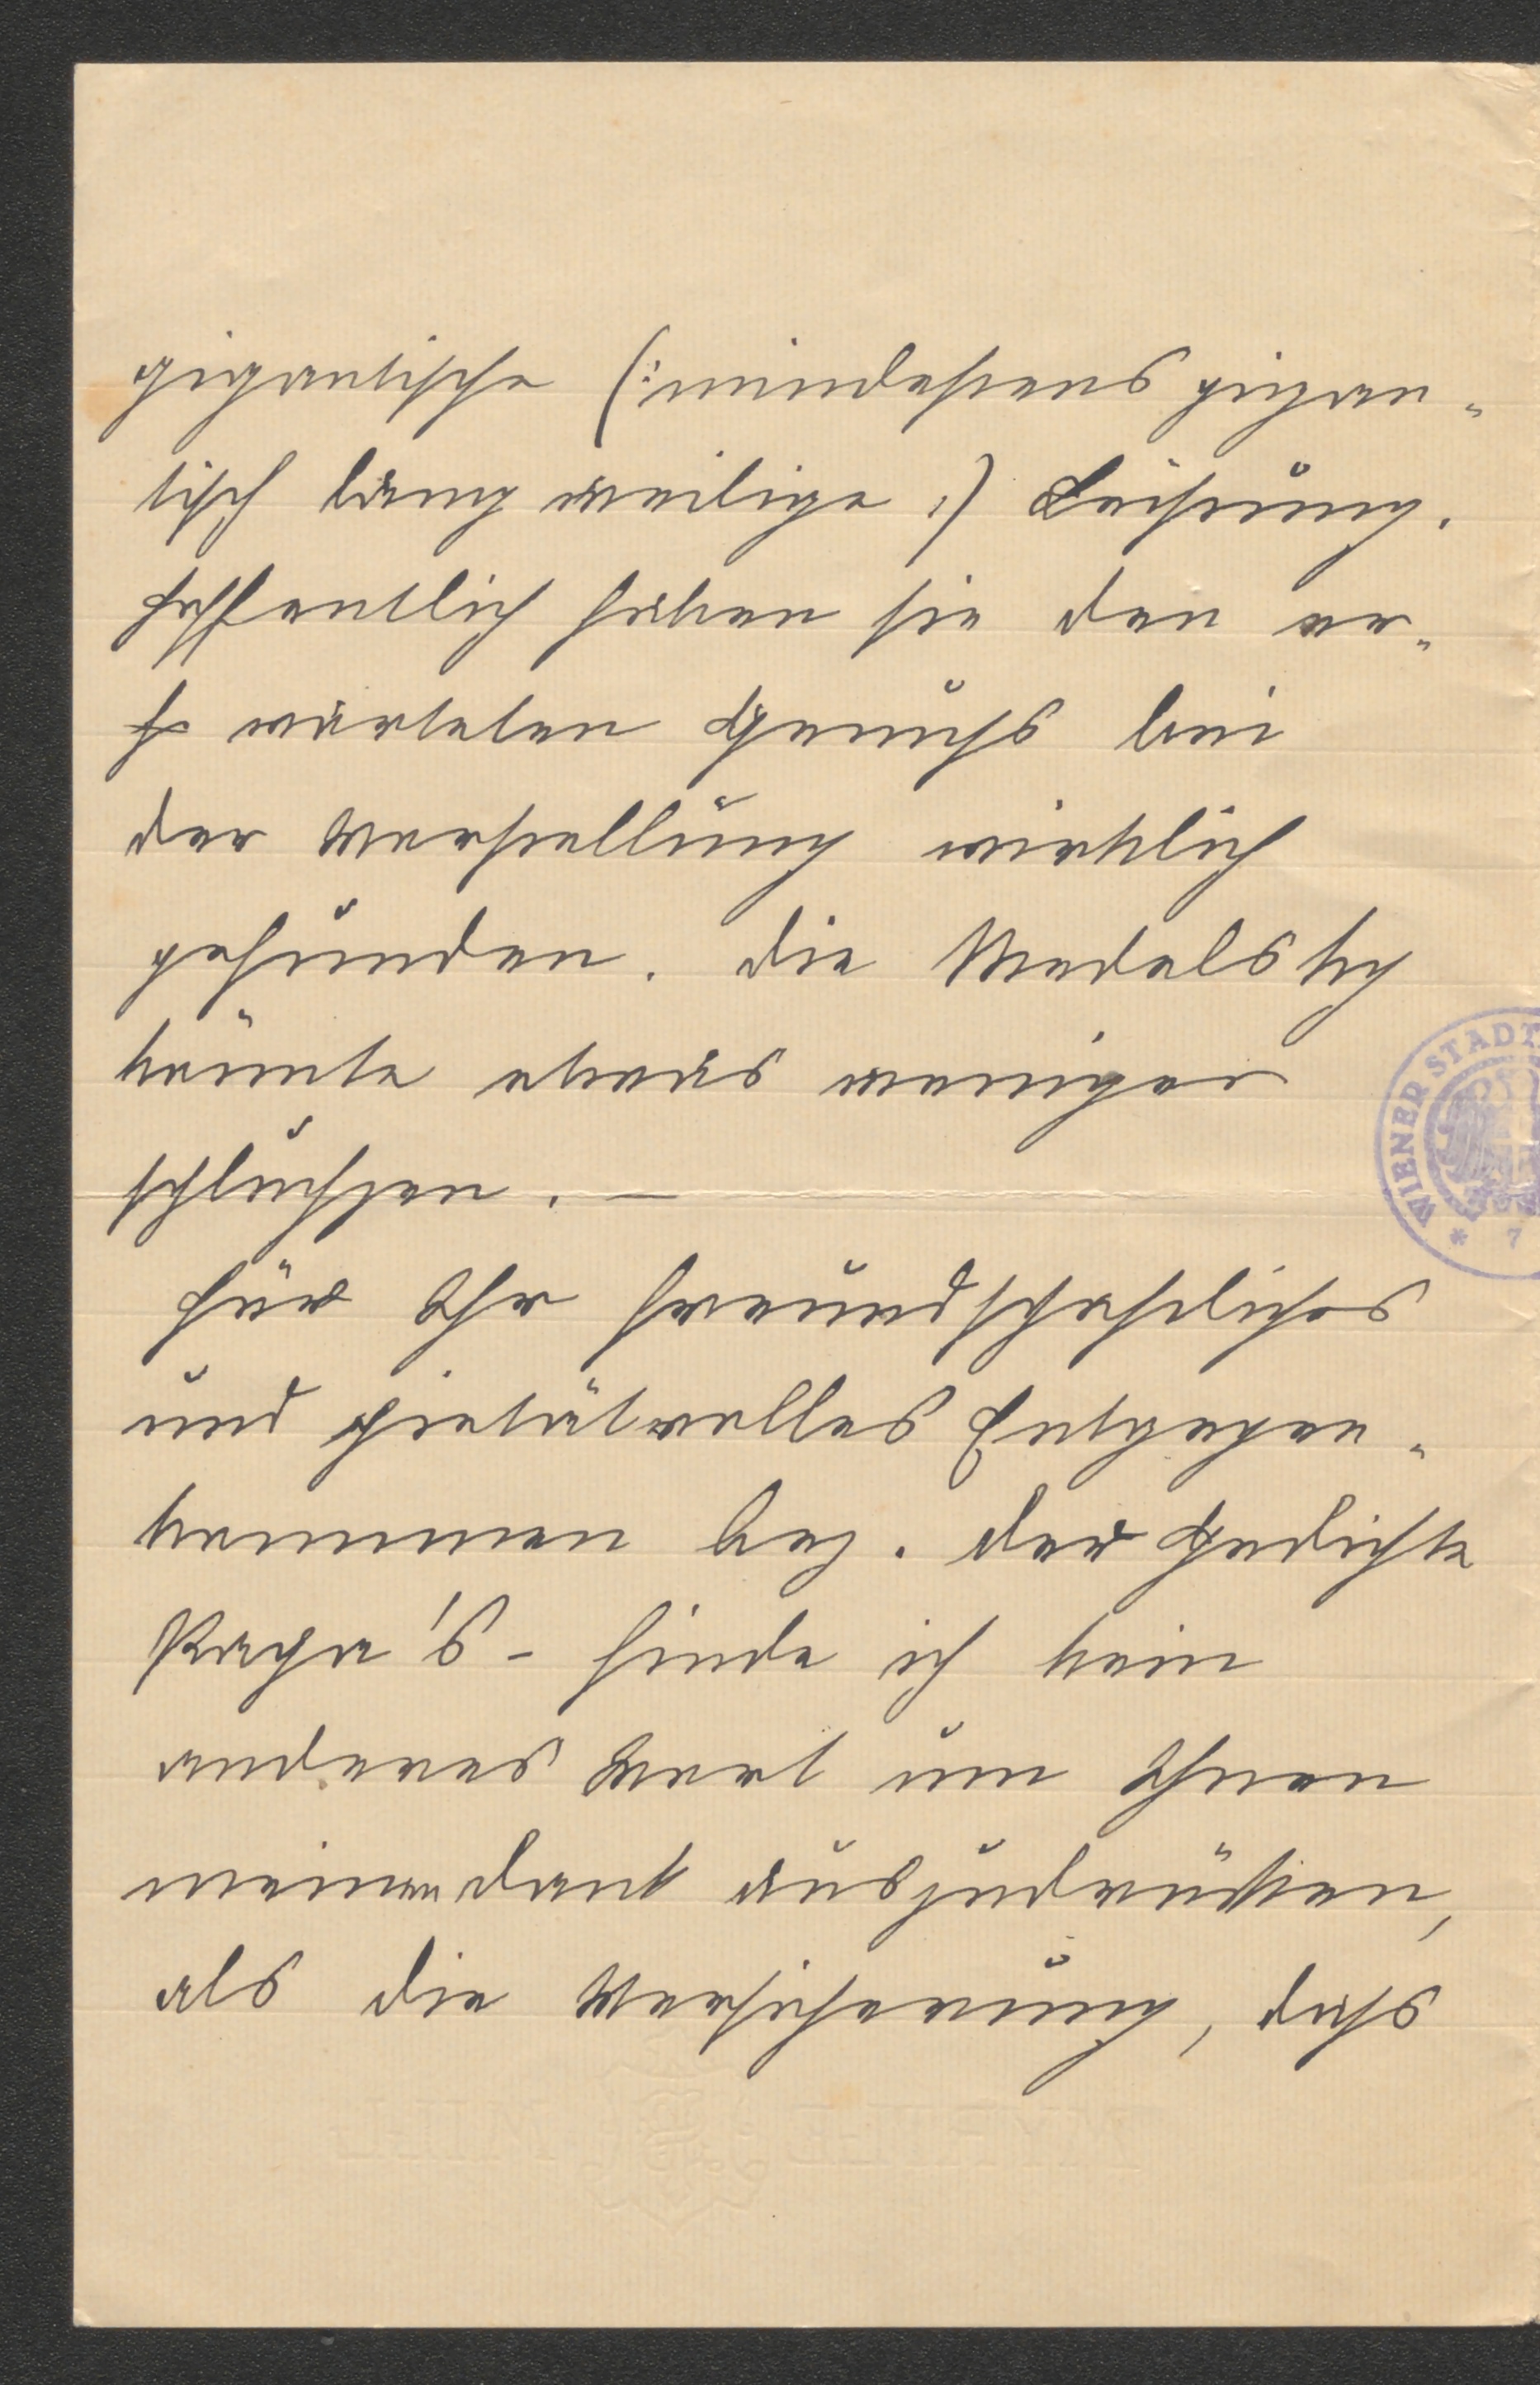 gigantische (: mindestens gigan-
tisch langweilige :) Leistung.
Hoffentlich haben sie den er-
warteten Genuss bei
der Vorstellung wirklich
gefunden. Die Medelsky
könnte etwas weniger
schluchzen. –
Für Ihr freundschaftliches
und pietätvolles Entgegen-
kommen bez. der Gedichte
– finde ich kein
anderes Wort um Ihnen
meinen Dank auszudrücken,
als die Versicherung, dass
WIENER STADT
* 7